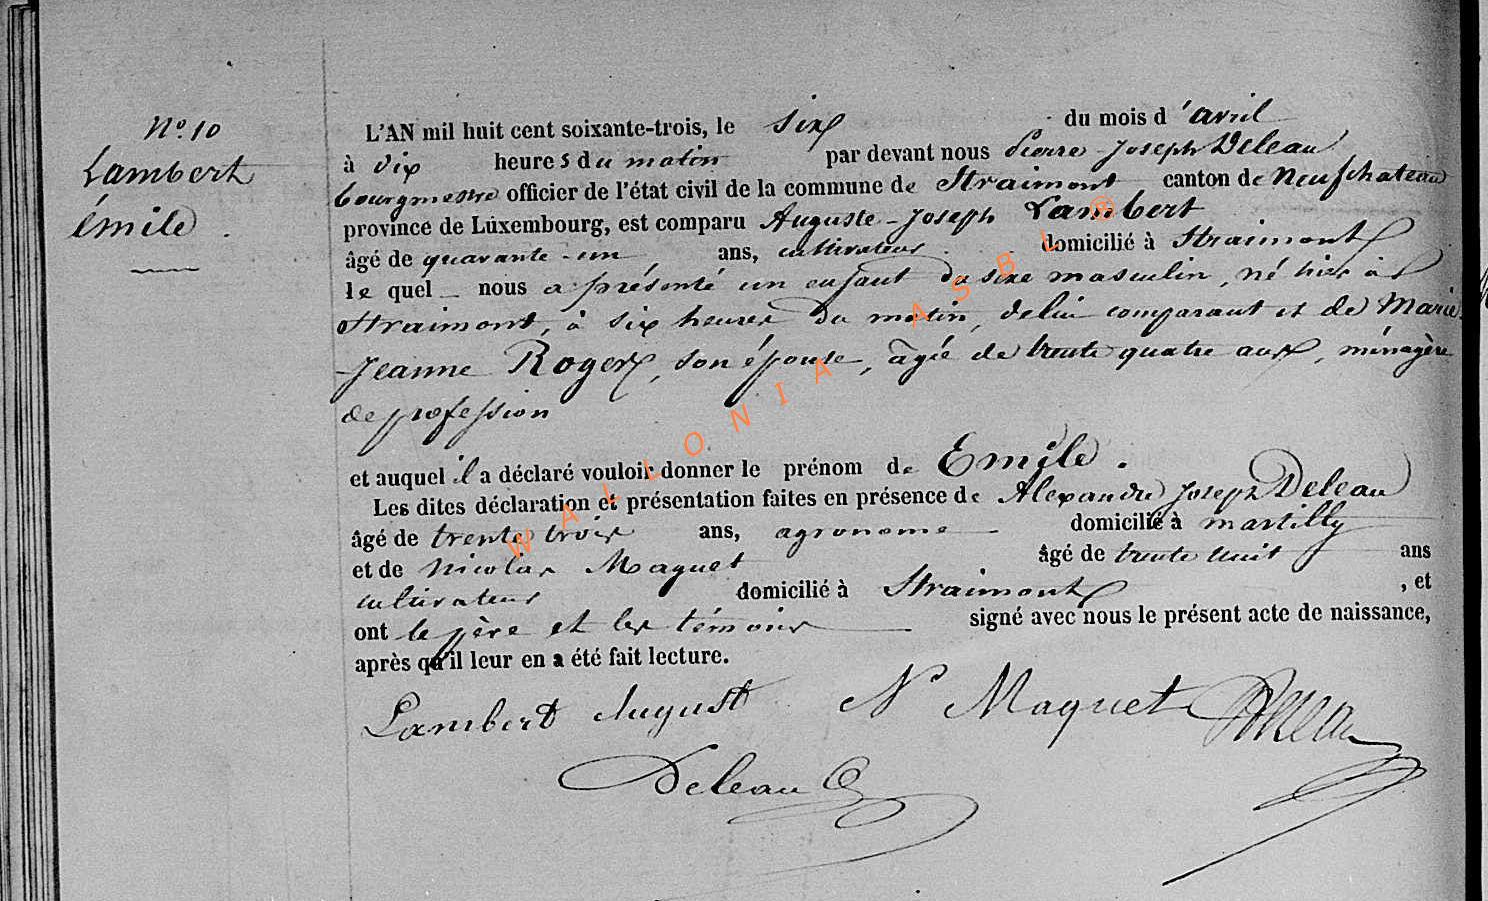 N°. 10
Lambert
émile.
L'AN mil huit cent soixante-trois, le six du mois d'avril
à dix heures du matin par devant nous Pierre-Joseph Deleau
bourgmestre officier de l'état civil de la commune de Straimont canton de Neufchateau
province de Luxembourg, est comparu Auguste-Joseph Lambert
âgé de quarante-un ans, cultivateur domicilié à Straimont
le quel nous a présenté un enfant du sexe masculin, né hier à
Straimont, à six heures du matin, de lui comparant et de Marie
Jeanne Roger, son épouse, âgée de trente quatre ans, ménagère
de profession
et auquel il a déclaré vouloir donner le prénom de Emile.
Les dites déclaration et présentation faites en présence de Alexandre Joseph Deleau
âgé de trente trois ans, agronome domicilié à martilly
et de Nicolas Maquet âgé de trente huit ans
cultivateur domicilié à Straimont, et
ont le père et les témoins signé avec nous le présent acte de naissance,
après qu'il leur en a été fait lecture.
Lambert August N Maquet
Deleau
WALLONIA ASBL ®